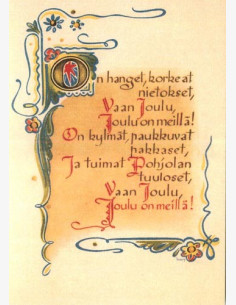 On hanget, korkeat
nietokset,
Vaan Joulu,
Joulu on meillä!
On kylmät, paukkuvat
pakkaset,
Ja tuimat Pohjolan
tuuloset,
Vaan Joulu,
Joulu on meillä!